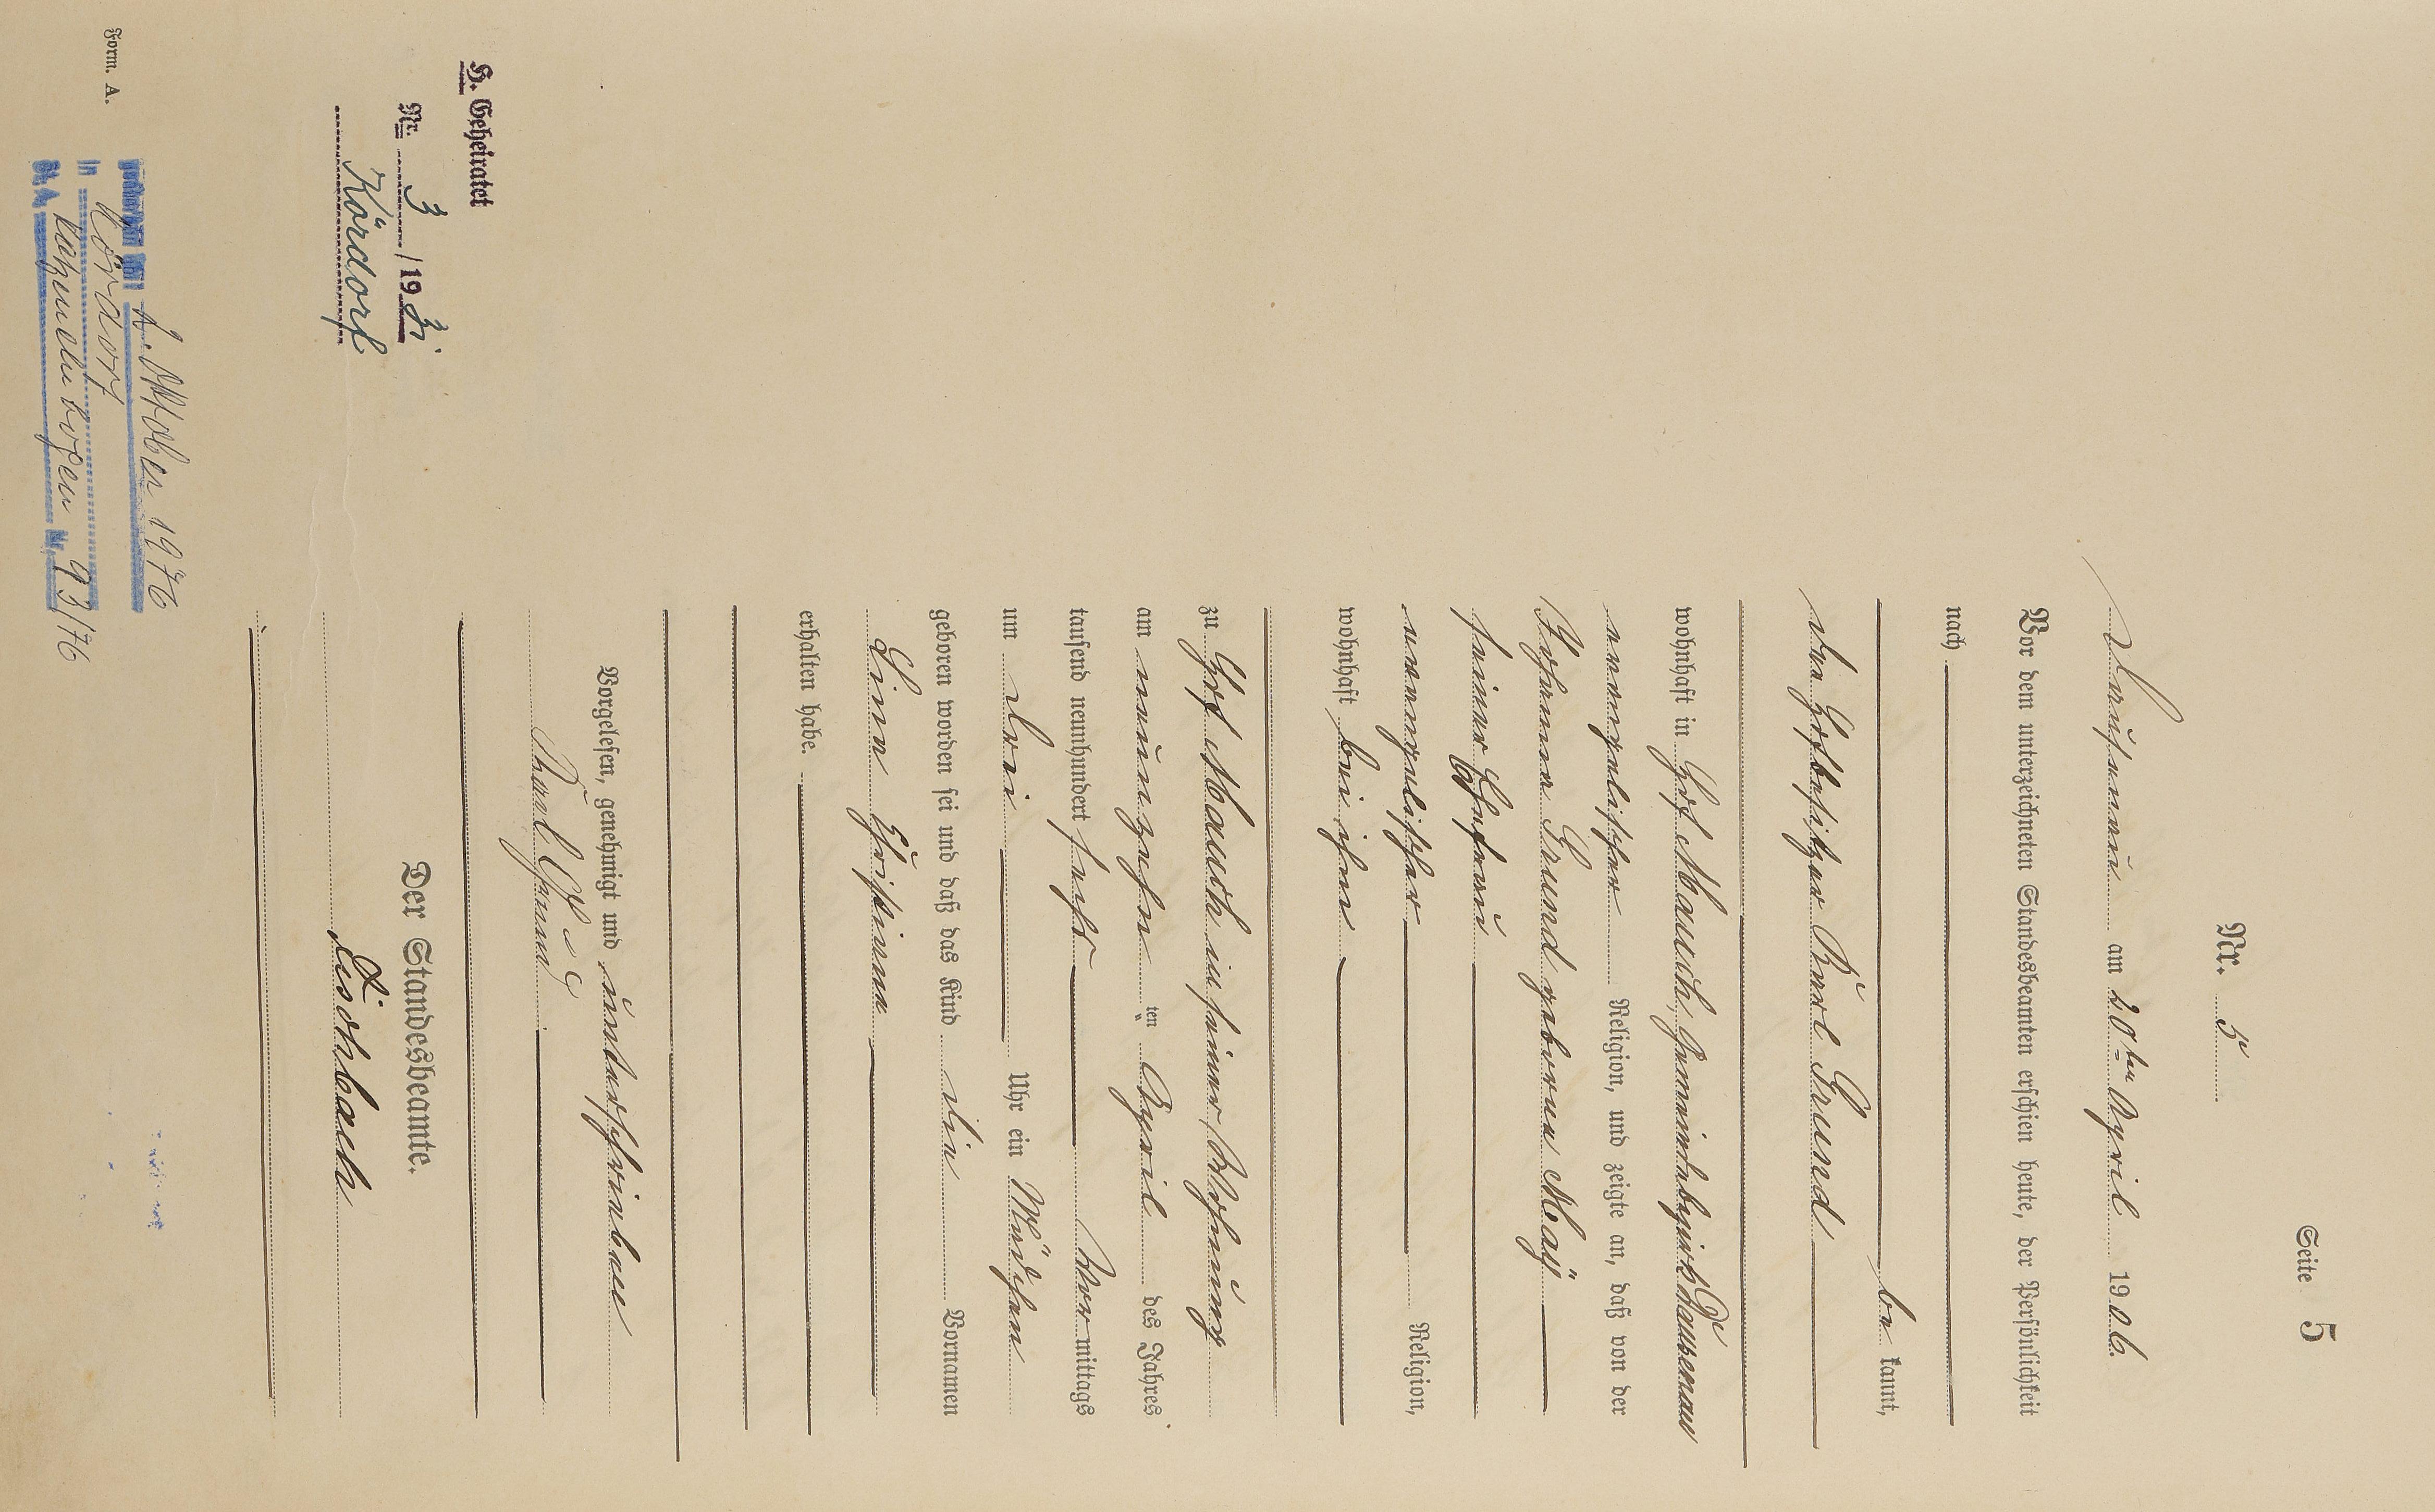 Seite 5
Nr. 5
Dausenau am 20ten April 1906.
Vor dem unterzeichneten Standesbeamten erschien heute, der Persönlichkeit
nach
be kannt,
der Hofbesitzer Karl Grund
wohnhaft in Hof Mauch, Gemeindebezirk Dausenau
evangelischer Religion, und zeigte an, daß von der
Johanna Grund geborene May
seiner Ehefrau
evangelischer Religion,
wohnhaft bei ihm
zu Hof Mauch in seiner Wohnung
am neunzehn ten April des Jahres
tausend neunhundert sechs Vor mittags
um drei Uhr ein Mädchen
geboren worden sei und daß das Kind die Vornamen
Lina Christiana
erhalten habe.
Vorgelesen, genehmigt und unterschrieben
Karl
Der Standesbeamte.
Linkbach
H. Geheiratet
Nr. 3 / 19 31
Kördorf
Form. A.
1. Oktober 1976
in Kördorf
St. A. Katzenelnbogen Nr. 93/76